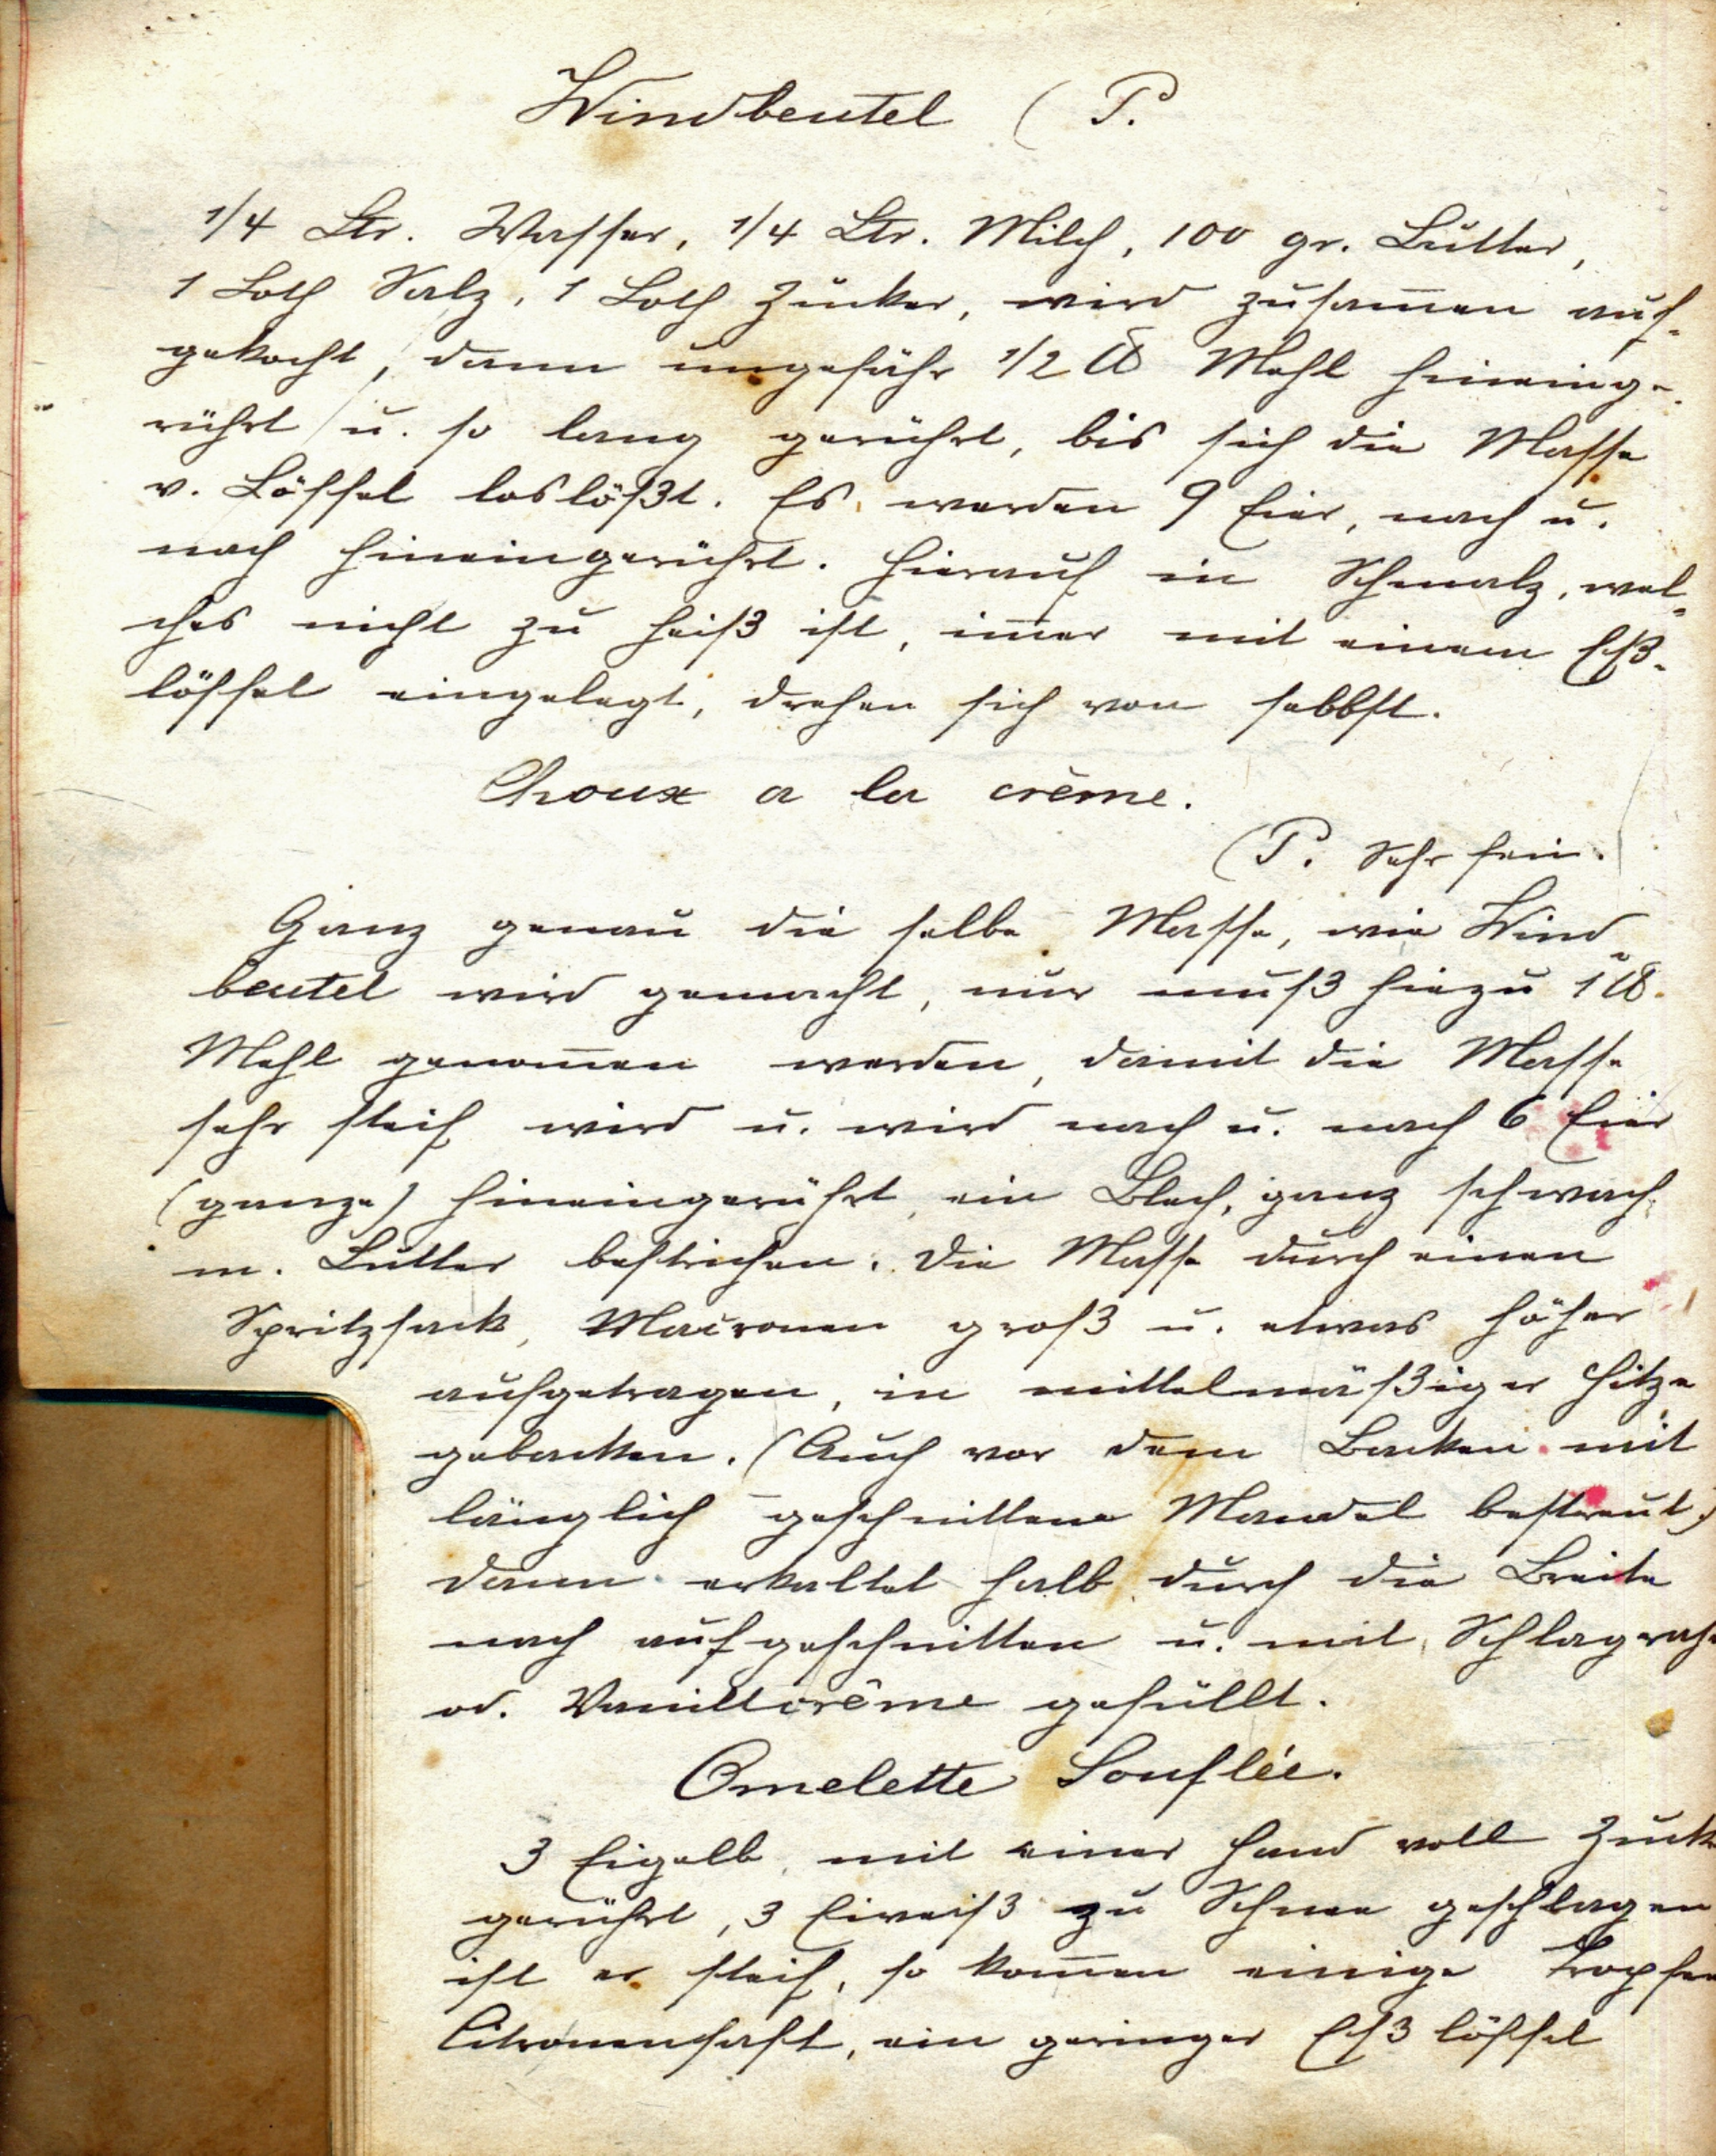 Windbeutel (P.
1/4 Ltr. Wasser, 1/4 Ltr. Milch, 100 gr. Butter,
1 Loth Salz, 1 Loth Zucker, wird zusam̅en auf-
gekocht, dann ungefähr 1/2 ℔ Mehl hineinge-
rührt u. so lang gerührt, bis sich die Masse
v. Löffel loslößt. Es werden 9 Eier, nach u.
nach hineingerührt. Hierauf in Schmalz, wel-
ches nicht zu heiß ist, im̅er mit einem Eß-
löffel eingelegt, drehen sich von selbst.
Choux a la crème.
(P. Sehr fein.
Ganz genau die selbe Masse, wie Wind-
beutel wird gemacht, nur muß hiezu 1 ℔.
Mehl genom̅en werden, damit die Masse
sehr steif wird u. wird nach u. nach 6 Eier
(ganze) hineingerührt, ein Blech, ganz schwach
m. Butter bestrichen. Die Masse durch einen
Spritzsack, Macronen groß u. etwas höher
aufgetragen, in mittelmäßiger Hitze
gebacken. (Auch vor dem Backen mit
länglich geschnittene Mandel bestreut)
dann erkaltet halb durch die Breite
nach aufgeschnitten u. mit Schlagrah
od. Vanillcrême gefüllt.
Omelette Souflée.
3 Eigelb, mit einer Hand voll Zuck
gerührt, 3 Eiweiß zu Schnee geschlagen,
ist er steif, so kom̅en einige Tropfen
Citronensaft, ein geringer Eßlöffel